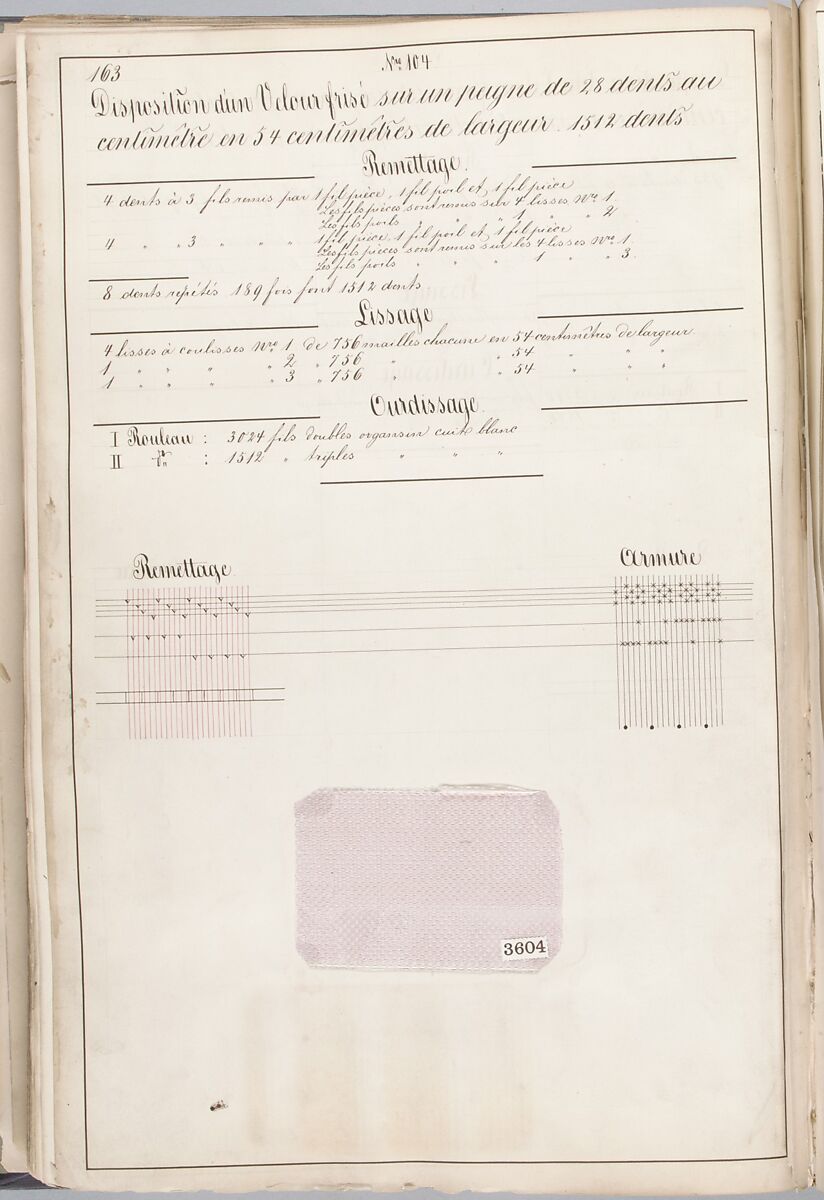 163
Nro 104
Disposition d'un Velour frisé sur un peigne de 28 dents au
centimètre en 54 centimètres de largeur. 1512 dents
Remettage.
4 dents à 3 fils remis par 1 fil pièce, 1 fil poil et 1 fil pièce
Les fils pièces sont remis sur 4 lisses Nro 1.
Les fils poils " " " 1 " " 2
4 " " 3 " " " 1 fil pièce, 1 fil poil et 1 fil pièce
Les fils pièces sont remis sur les 4 lisses Nro 1.
Les fils poils " " " 1 " " 3.
8 dents répétés 189 fois font 1512 dents
Lissage
4 lisses à coulisses Nro 1 de 756 mailles chacune en 54 centimètres de largeur.
1 " " " " 2 " 756 " " 54 " " "
1 " " " " 3 " 756 " " 54 " " "
Ourdissage.
I Rouleau : 3024 fils doubles organsin cuit blanc
II do : 1512 " triples " " "
Remettage.
Armure
3604